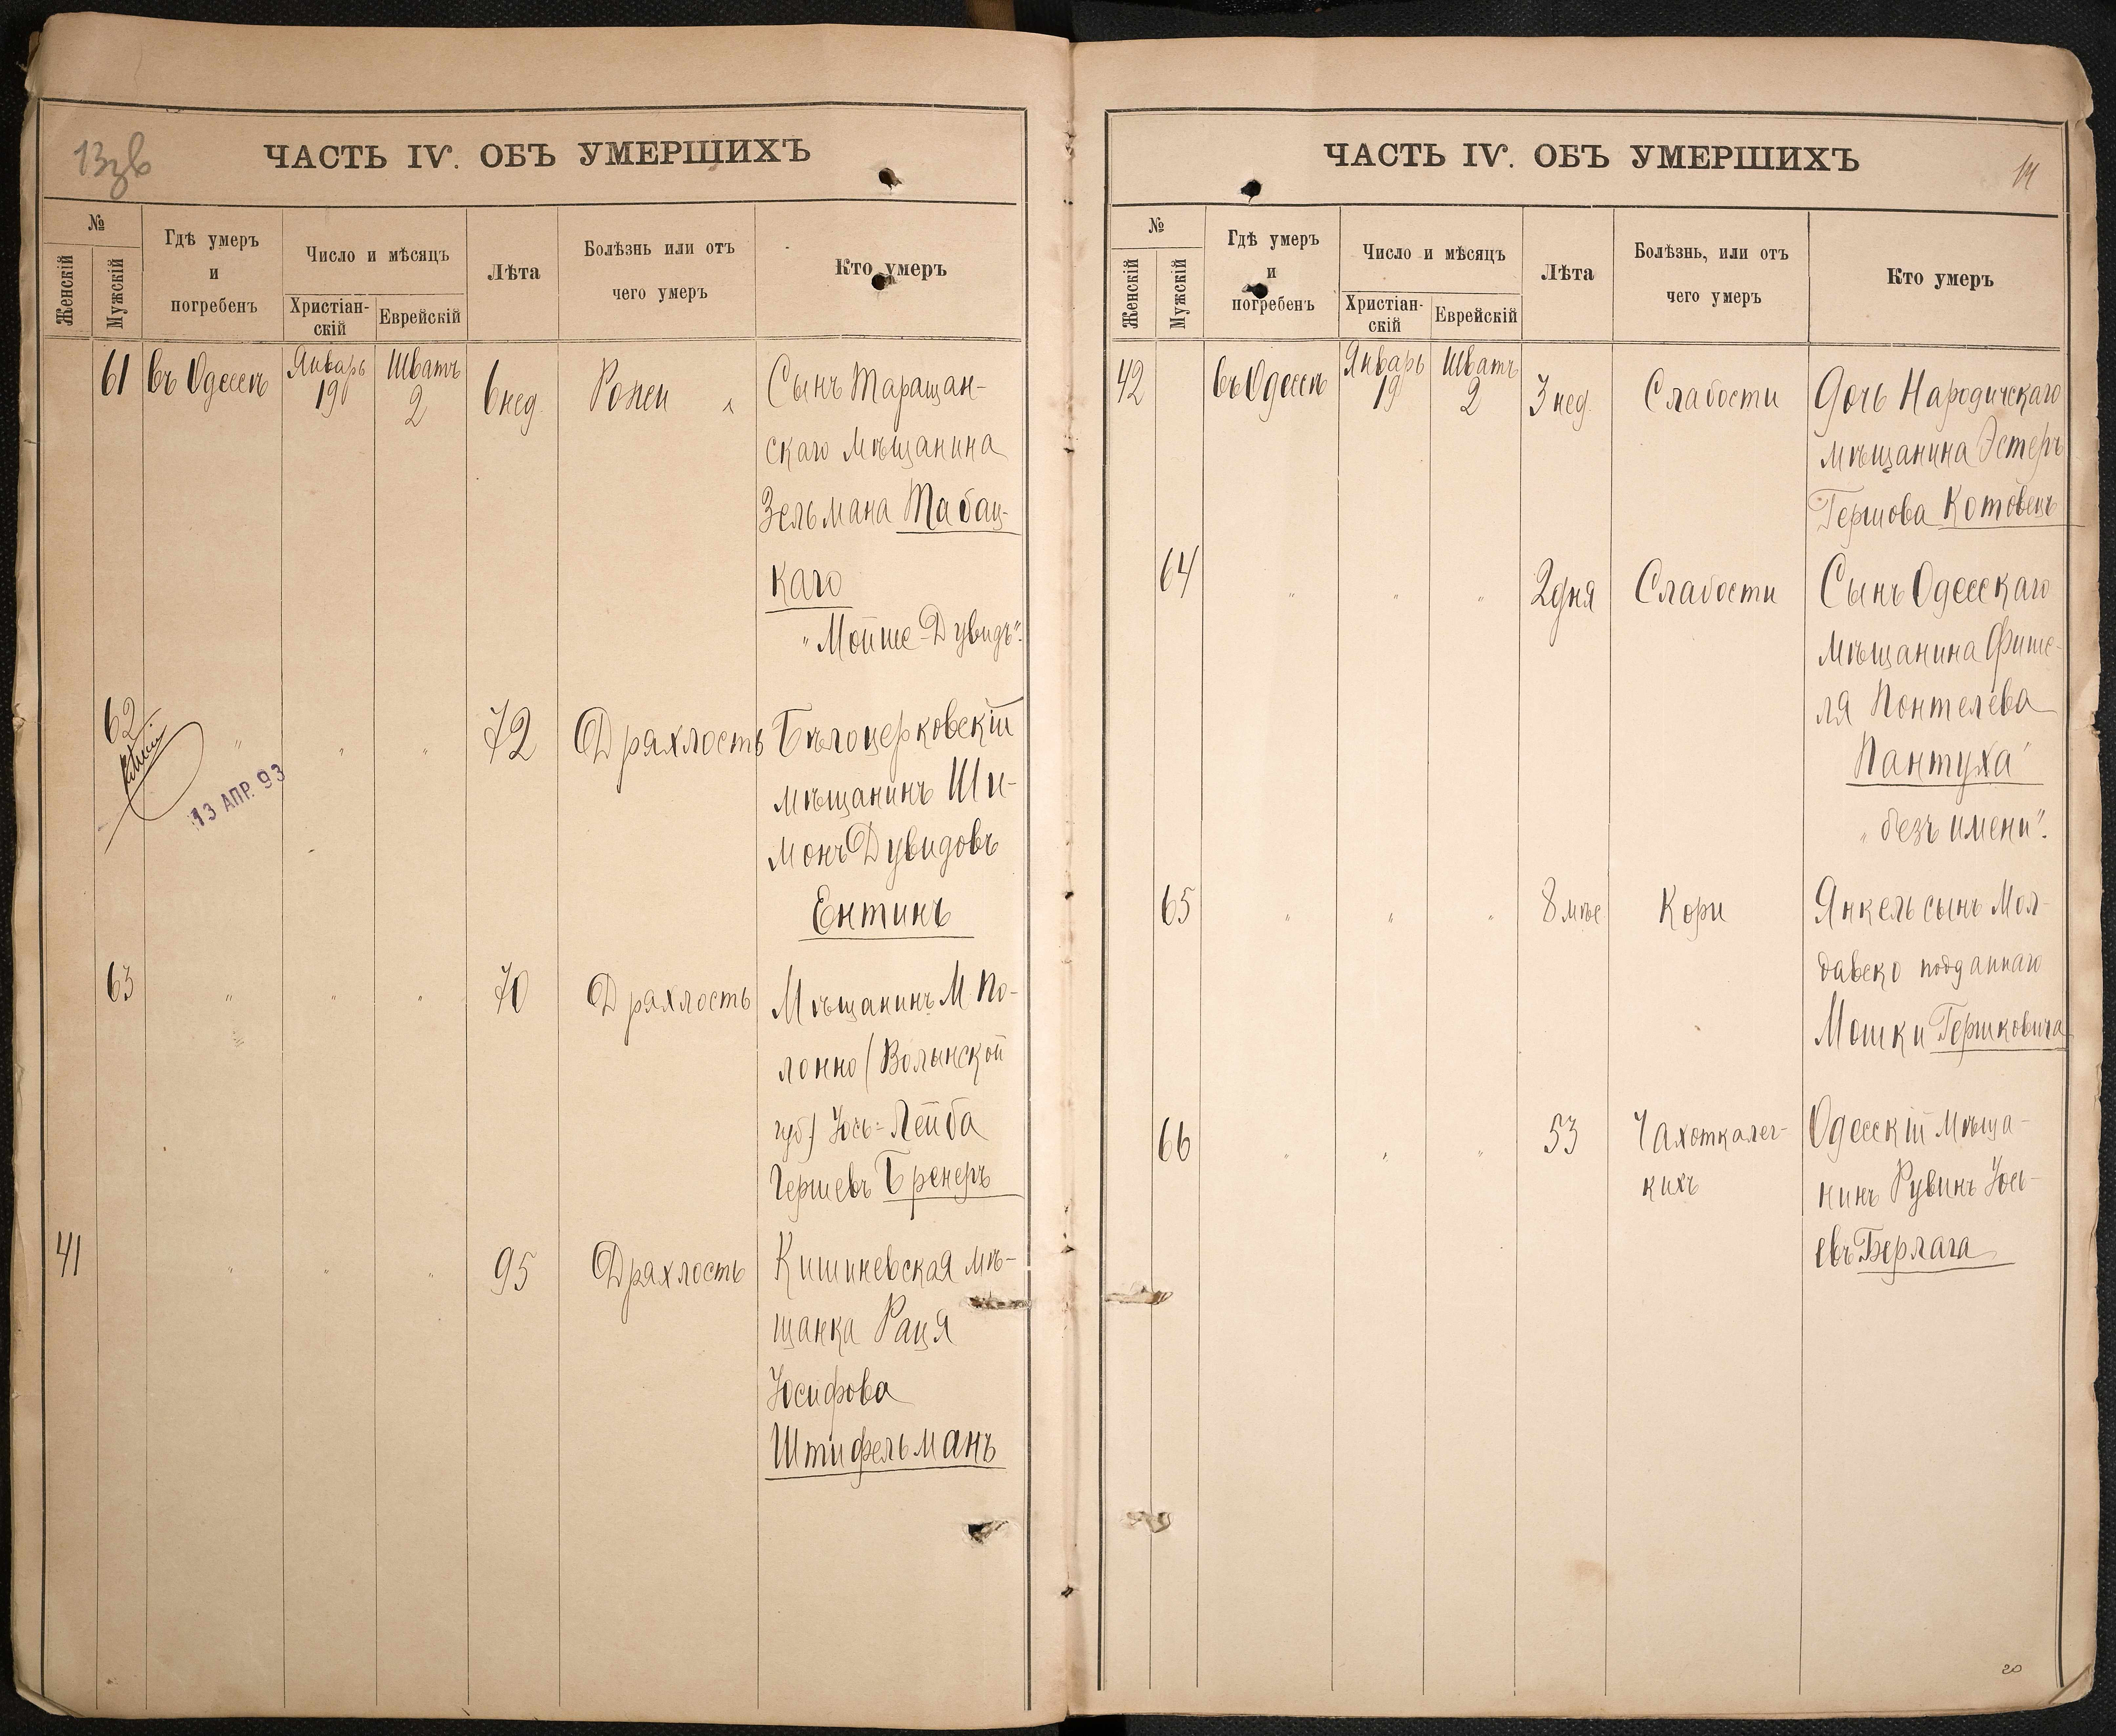 13зв
ЧАСТЬ IV. ОБЪ УМЕРШИХЪ
№
Женскій
Мужскій
Гдѣ умеръ
и
погребенъ
Число и мѣсяцъ
Христіан-
скій
Еврейскій
Лѣта
Болѣзнь или отъ
чего умеръ
Кто умеръ
61 въ Одессѣ Январь 19 Шватъ 2 6 нед. Рожи Сынъ Таращан-
скаго мѣщанина
Зельмана Табац-
каго
"Мойше-Дувидъ".
62 " " " 72 Дряхлость Бѣлоцерковскій
мѣщанинъ Ши-
монъ Дувидовъ
Ентинъ
13 АПР. 93
63 " " " 70 Дряхлость Мѣщанинъ М. По-
лонно (Волынской
губ.) Іось-Лейба
Гершевъ Бренеръ
41 " " " 95 Дряхлость Кишиневская мѣ-
щанка Рация
Іосифова
Штифельманъ
ЧАСТЬ IV. ОБЪ УМЕРШИХЪ
14
№
Женскій
Мужскій
Гдѣ умеръ
и
погребенъ
Число и мѣсяцъ
Христіан-
скій
Еврейскій
Лѣта
Болѣзнь, или отъ
чего умеръ
Кто умеръ
42 въ Одессѣ Январь 19 Шватъ 2 3 нед. Слабости Дочь Народичскаго
мѣщанина Эстеръ
Гершова Котовецъ
64 " " " 2 дня Слабости Сынъ Одесскаго
мѣщанина Фише-
ля Понтелева
Пантуха
"безъ имени".
65 " " " 8 мѣс Кори Янкель сынъ Мол-
давско подданнаго
Мошки Гершковича
66 " " " 53 Чахотка лег-
кихъ
Одесскій мѣща-
нинъ Рувинъ Іось-
евъ Берлага
20